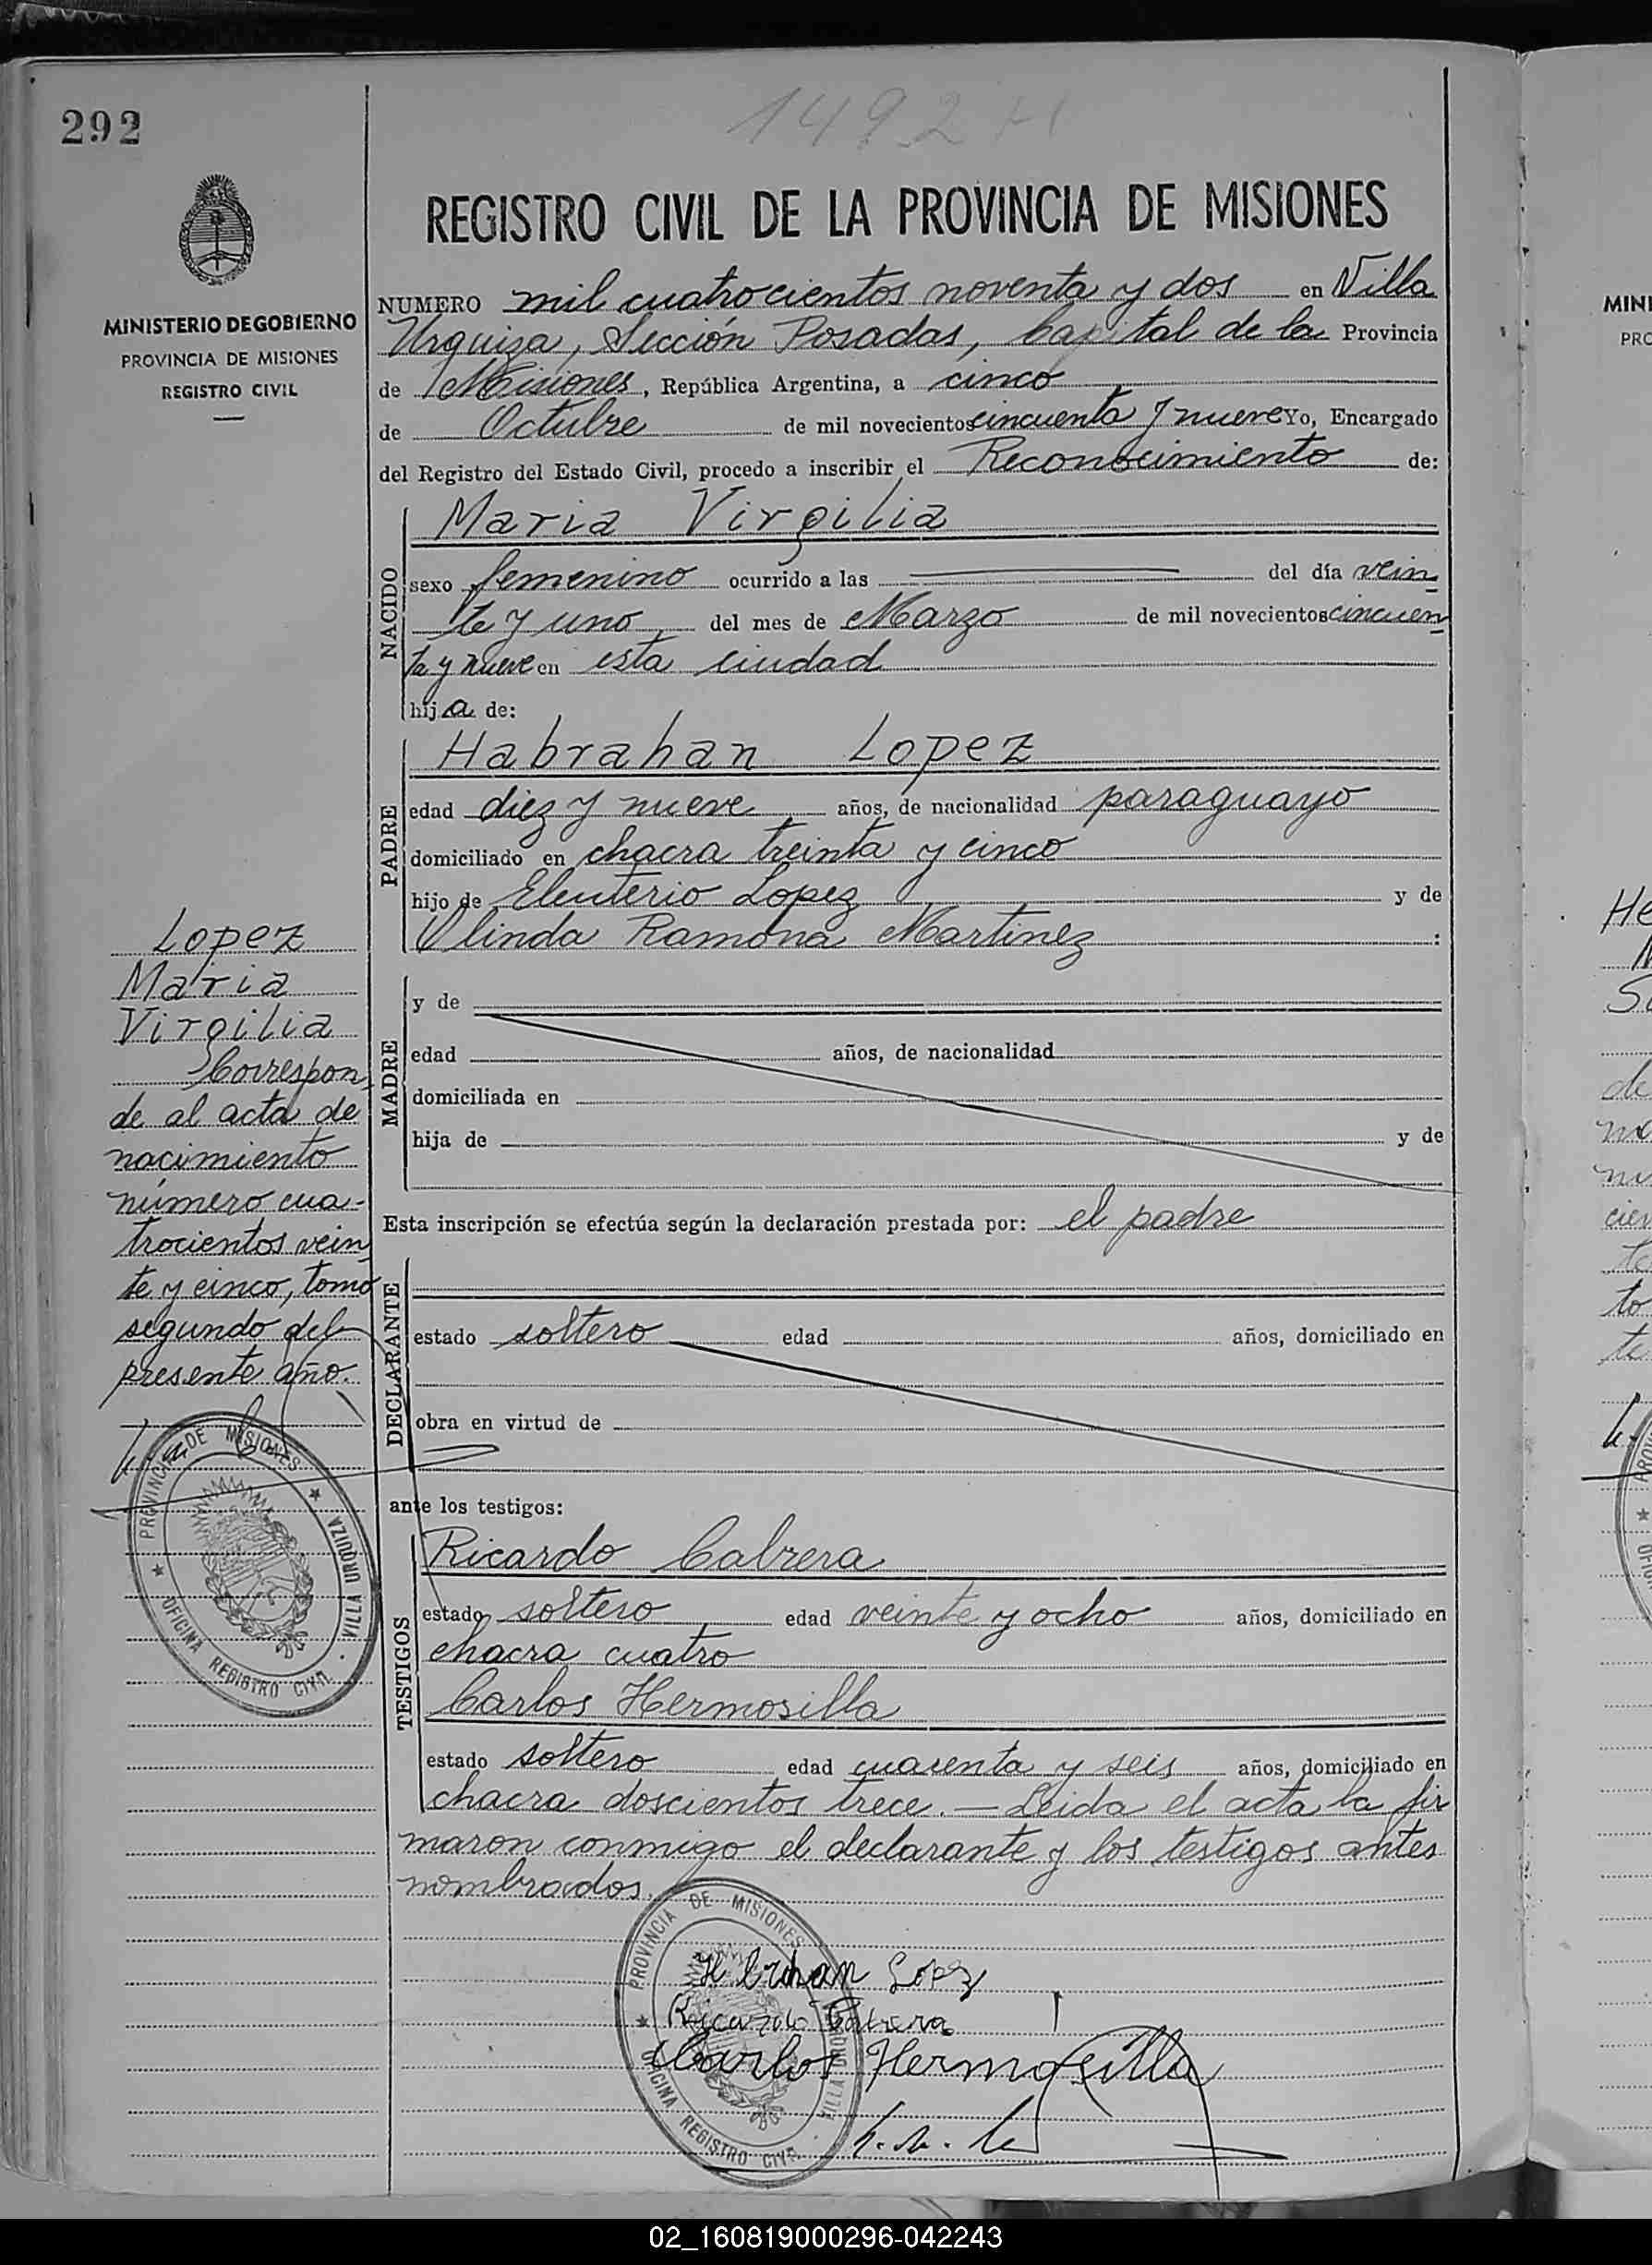 292
1492 H
MINISTERIO DE GOBIERNO
PROVINCIA DE MISIONES
REGISTRO CIVIL
REGISTRO CIVIL DE LA PROVINCIA DE MISIONES
NUMERO mil cuatrocientos noventa y dos en Villa
Urquiza, Sección Posadas, Capital de la Provincia
de Misiones, República Argentina, a cinco
de Octubre de mil novecientos cincuenta y nueve Yo, Encargado
del Registro del Estado Civil, procedo a inscribir el Reconocimiento de:
NACIDO
Maria Virgilia
sexo femenino ocurrido a las del día vein
te y uno del mes de Marzo de mil novecientos cincuen
ta y nueve en esta ciudad
hija de:
PADRE
Habrahan Lopez
edad diez y nueve años, de nacionalidad paraguayo
domiciliado en chacra treinta y cinco
hijo de Eleuterio Lopez y de
Olinda Ramona Martinez :
MADRE
y de
edad años, de nacionalidad
domiciliada en
hija de y de
Esta inscripción se efectúa según la declaración prestada por: el padre
DECLARANTE
estado soltero edad años, domiciliado en
obra en virtud de
ante los testigos:
TESTIGOS
Ricardo Cabrera
estado soltero edad veinte y ocho años, domiciliado en
chacra cuatro
Carlos Hermosilla
estado soltero edad cuarenta y seis años, domiciliado en
chacra doscientos trece. — Leida el acta la fir
maron conmigo el declarante y los testigos antes
nombrados.
Lopez
Maria
Virgilia
Correspon
de al acta de
nacimiento
número cua-
trocientos vein
te y cinco, tomo
segundo del
presente año.
PROVINCIA DE MISIONES
VILLA URQUIZA
OFICINA REGISTRO CIVIL
PROVINCIA DE MISIONES
VILLA URQUIZA
OFICINA REGISTRO CIVIL
Lopez
Ricardo Cabrera
Carlos Hermosilla
MINI
PRO
He
02_160819000296-042243